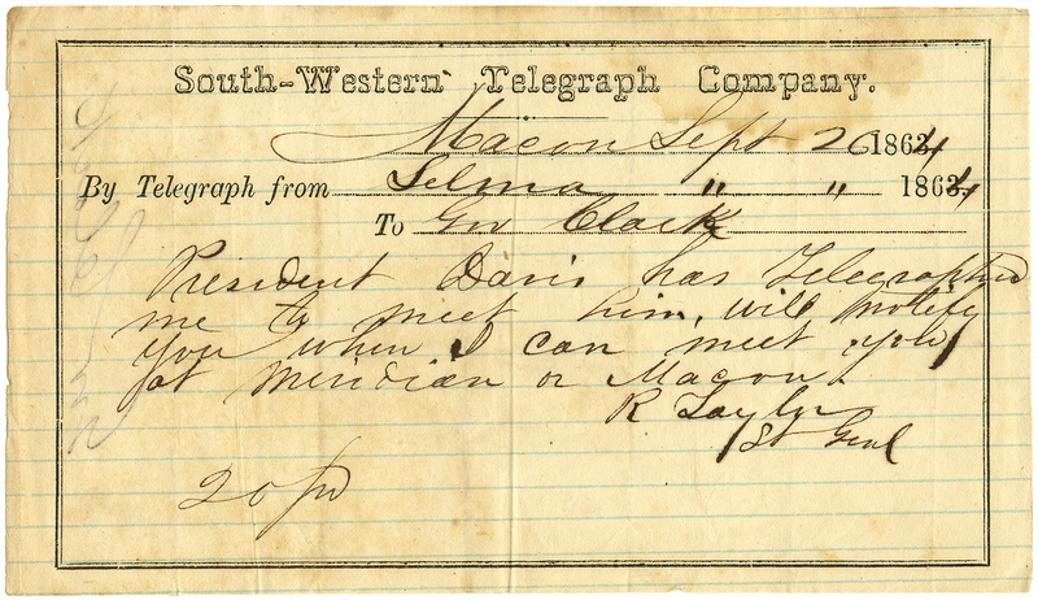 South-Western Telegraph Company.
Macon Sept 26 1864
By Telegraph from Selma " " 1864
To Gov Clark
President Davis has Telegraphed
me to meet him, will notify
you when I can meet you
at Meridian or Macon.
R Taylor
Lt Genl
20 pd